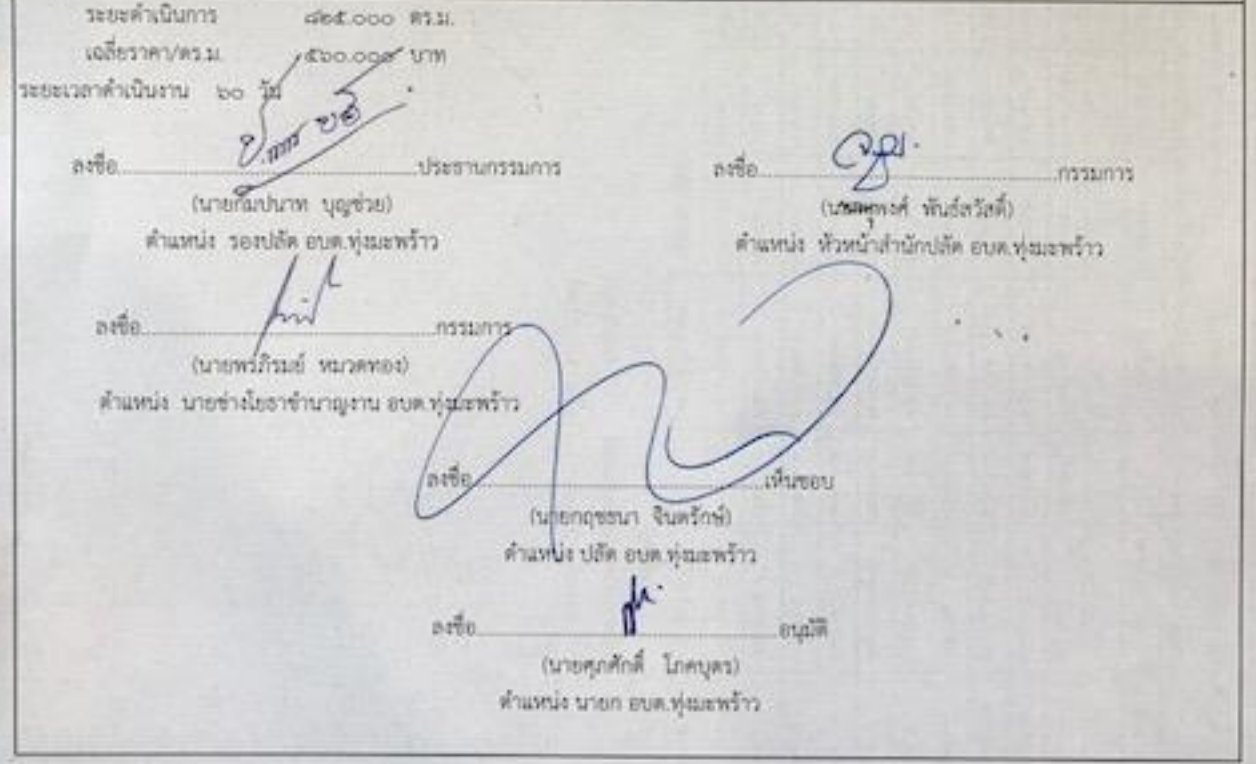 ระยะดำเนินการ ๘๒๕.๐๐๐ ตร.ม.
เฉลี่ยราคา/ตร.ม. ๕๖๐.๐๐๐ บาท
ระยะเวลาดำเนินงาน ๖๐ วัน
ลงชื่อ ประธานกรรมการ
(นายกัมปนาท บุญช่วย)
ตำแหน่ง รองปลัด อบต.ทุ่งมะพร้าว
ลงชื่อ กรรมการ
พันธ์สวัสดิ์)
ตำแหน่ง หัวหน้าสำนักปลัด อบต.ทุ่งมะพร้าว
ลงชื่อ กรรมการ
(นายพรภิรมย์ หมวดทอง)
ตำแหน่ง นายช่างโยธาชำนาญงาน อบต.ทุ่งมะพร้าว
ลงชื่อ เห็นชอบ
(นายกฤชธนา จินตรักษ์)
ตำแหน่ง ปลัด อบต.ทุ่งมะพร้าว
ลงชื่อ อนุมัติ
(นายศุภศักดิ์ โภคบุตร)
ตำแหน่ง นายก อบต.ทุ่งมะพร้าว